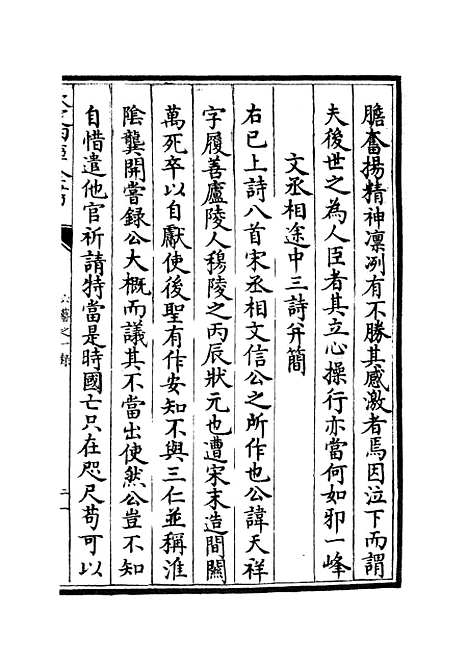 膽奮揚精神凜冽有不勝其感激者焉因泣下而謂
夫後世之為人臣者其立心操行亦當何如邪一峰
文丞相途中三詩并簡
右已上詩八首宋丞相文信公之所作也公諱天祥
字履善廬陵人穆陵之丙辰狀元也遭宋末造間關
萬死卒以自獻使後聖有作安知不與三仁並稱淮
陰龔開嘗録公大概而議其不當出使然公豈不知
自惜遣他官祈請特當是時國亡只在咫尺苟可以
六藝之一録